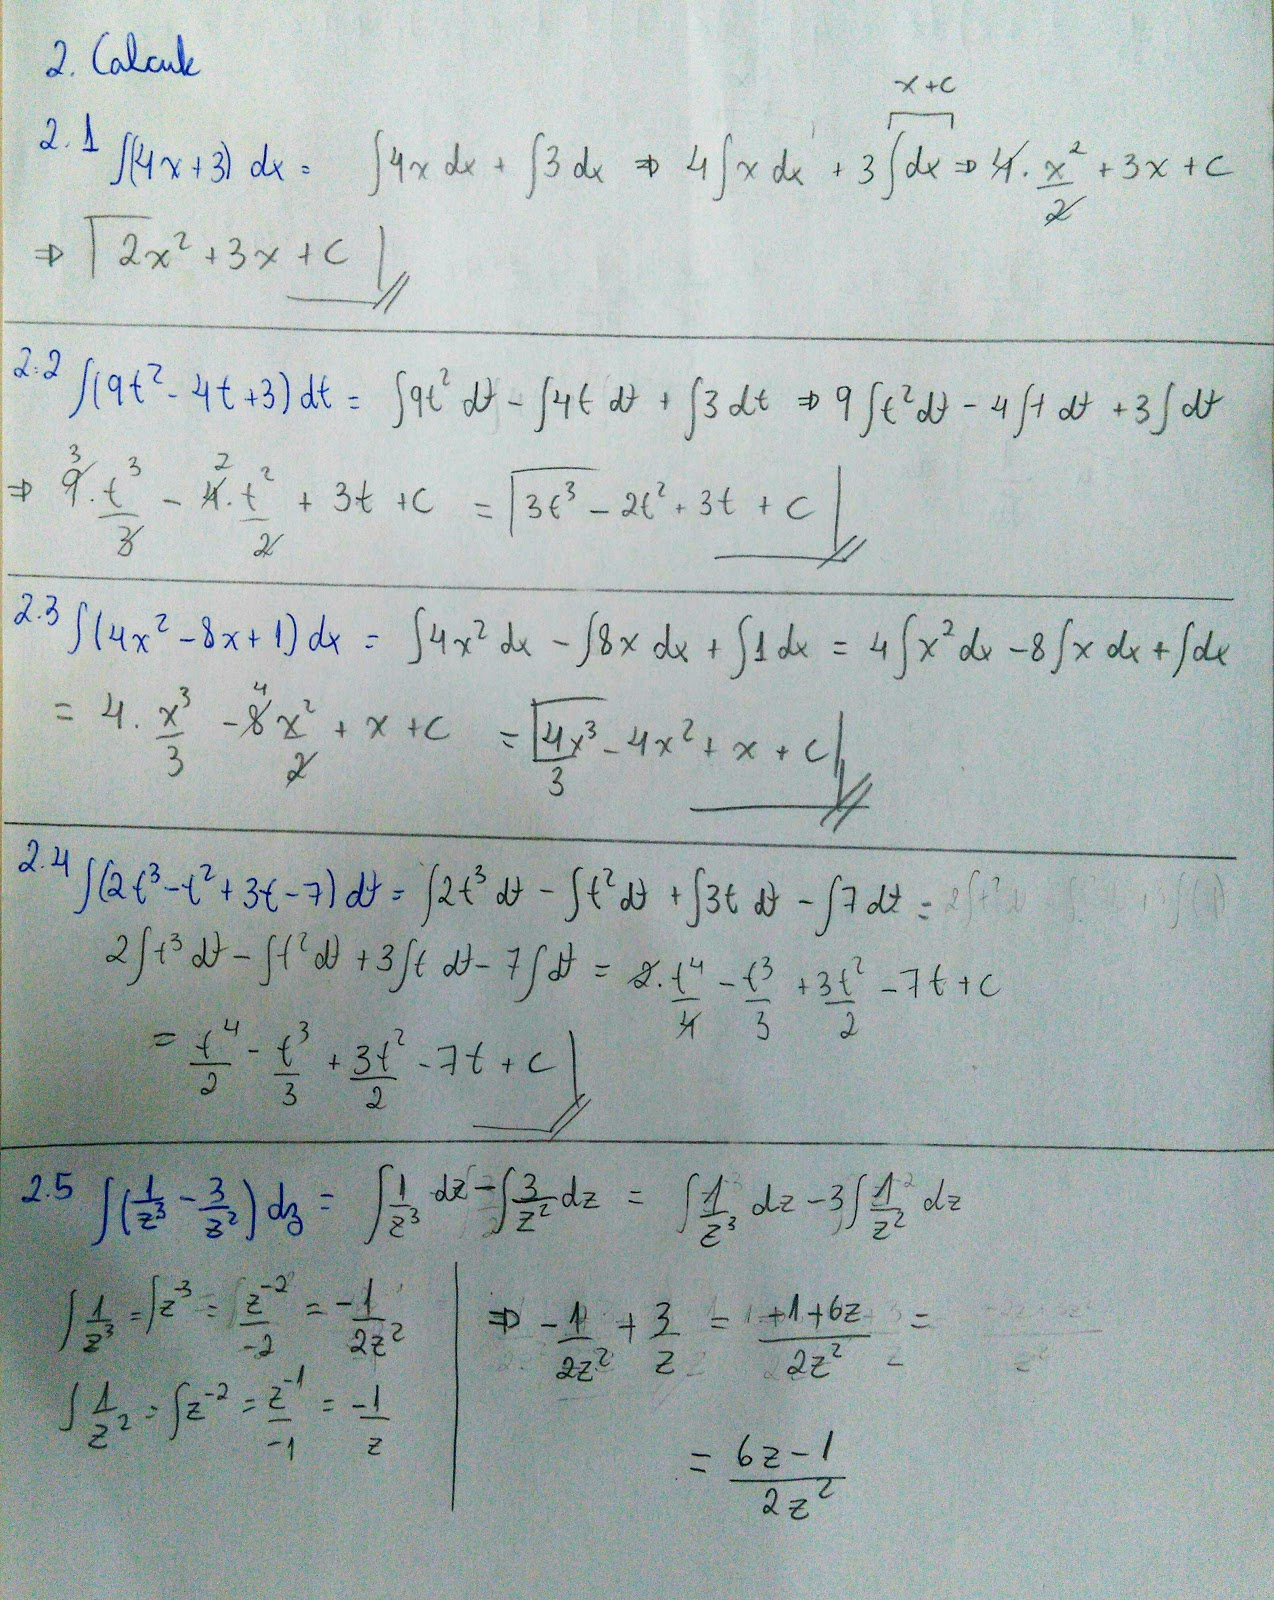 2. Calcule
x+c
2.1 ∫(4x+3) dx = ∫4x dx + ∫3 dx ⇒ 4∫x dx + 3∫dx ⇒ 4·x²/2 + 3x + c
⇒ 2x² + 3x + c
2.2 ∫(9t² - 4t + 3) dt = ∫9t² dt - ∫4t dt + ∫3 dt ⇒ 9∫t² dt - 4∫t dt + 3∫dt
3 2
⇒ 9·t³/3 - 4·t²/2 + 3t + c = 3t³ - 2t² + 3t + c
2.3 ∫(4x² - 8x + 1) dx = ∫4x² dx - ∫8x dx + ∫1 dx = 4∫x² dx - 8∫x dx + ∫dx
4
= 4·x³/3 - 8x²/2 + x + c = 4x³/3 - 4x² + x + c
2.4 ∫(2t³ - t² + 3t - 7) dt = ∫2t³ dt - ∫t² dt + ∫3t dt - ∫7 dt =
2∫t³ dt - ∫t² dt + 3∫t dt - 7∫dt = 2·t⁴/4 - t³/3 + 3t²/2 - 7t + c
= t⁴/2 - t³/3 + 3t²/2 - 7t + c
2.5 ∫(1/z³ - 3/z²) dz = ∫1/z³ dz - ∫3/z² dz = ∫1/z³ dz - 3∫1/z² dz
∫1/z³ = ∫z⁻³ = z⁻²/-2 = -1/2z²
∫1/z² = ∫z⁻² = z⁻¹/-1 = -1/z
⇒ -1/2z² + 3/z = +1+6z/2z² =
= 6z-1/2z²